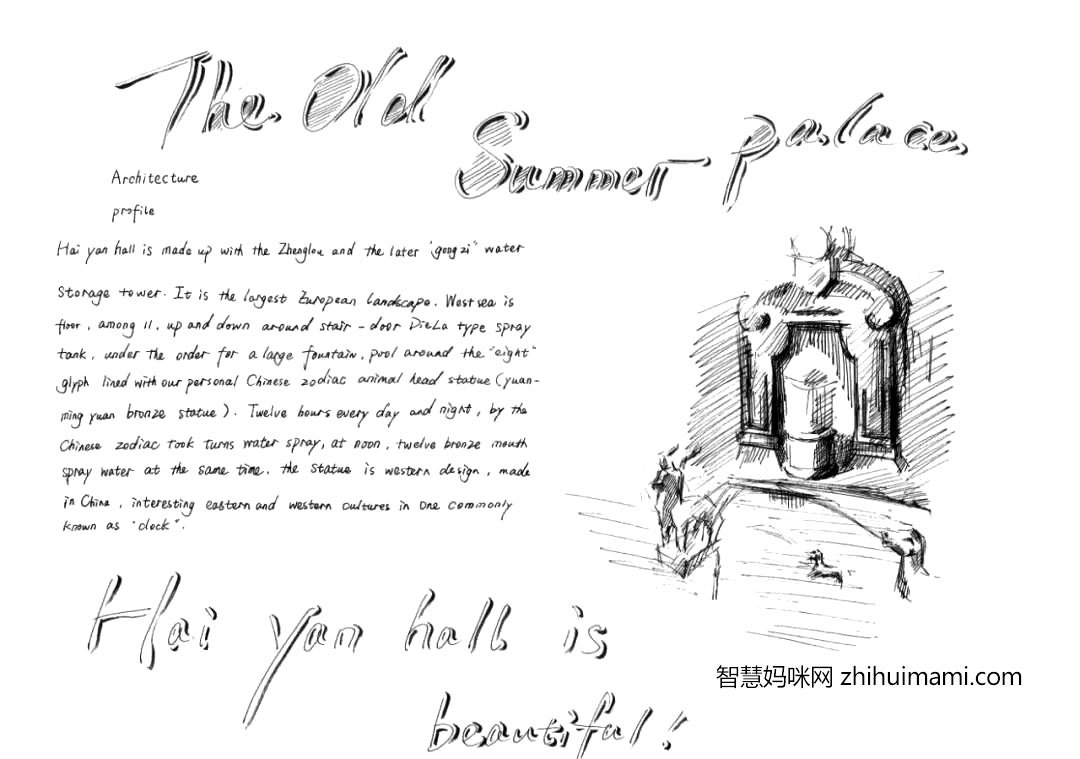 The Old
Summer palace
Architecture
profile
Hai yan hall is made up with the Zhenglou and the later "gong zi" water
Storage tower. It is the largest European landscape. West sea is
floor, among 11, up and down around stair-door DieLa type spray
tank, under the order for a large fountain, pool around the "eight"
glyph lined with our personal Chinese zodiac animal head statue (yuan-
ming yuan bronze statue). Twelve hours every day and night, by the
Chinese zodiac took turns water spray, at noon, twelve bronze mouth
spray water at the same time. the statue is western design, made
in China, interesting eastern and western cultures in one commonly
known as "clock".
Hai yan hall is
beautiful!
智慧妈咪网 zhihuimami.com